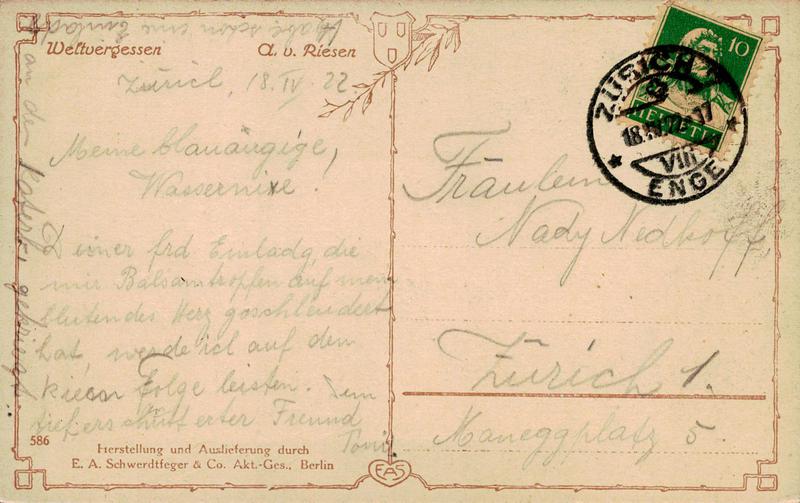 Habe schon eine Einladg
Weltvergessen A. v. Riesen
Zürich, 18. IV 22
Meine blauäugige,
Wassernixe!
Deiner frd Einladg, die
mir Balsamtropfen auf mein
blutendes Herz geschleudert
hat, werde ich auf den
Folge leisten. Dein
tief erschütterter Freund
Toni
an den
586
Herstellung und Auslieferung durch
E. A. Schwerdtfeger & Co. Akt.-Ges., Berlin
EAS
10
HELVETIA
ZÜRICH
18.IV.22.-17
VIII
ENGE
Fräulein
Nady Nedkoff
Zürich 1.
Maneggplatz 5.